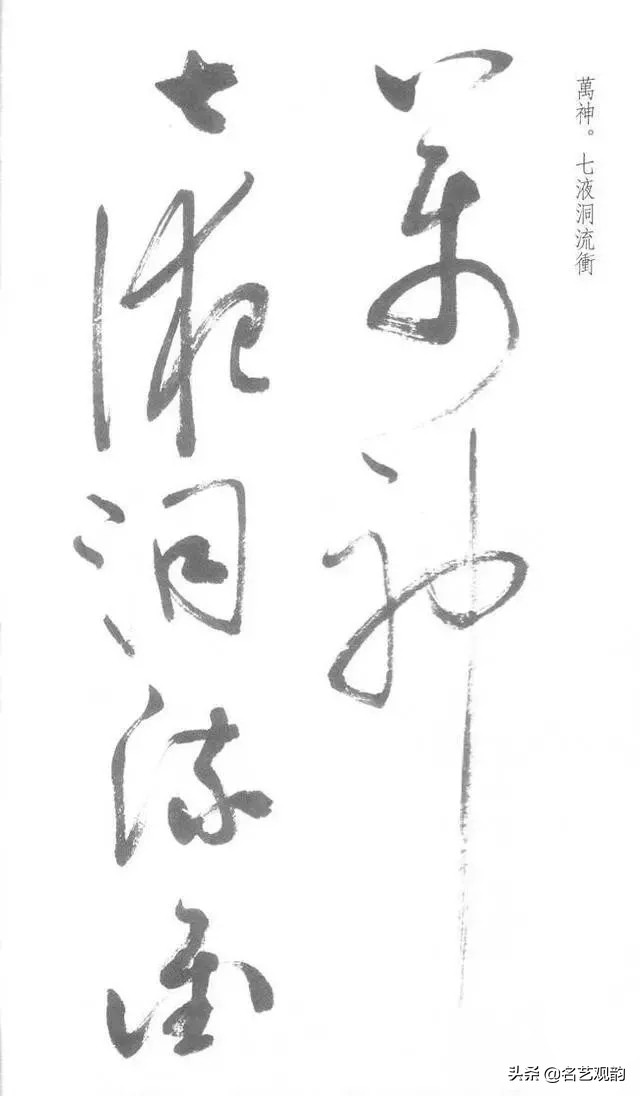 萬神。七液洞流衝
萬神
七液洞流衝
头条 @名艺观韵